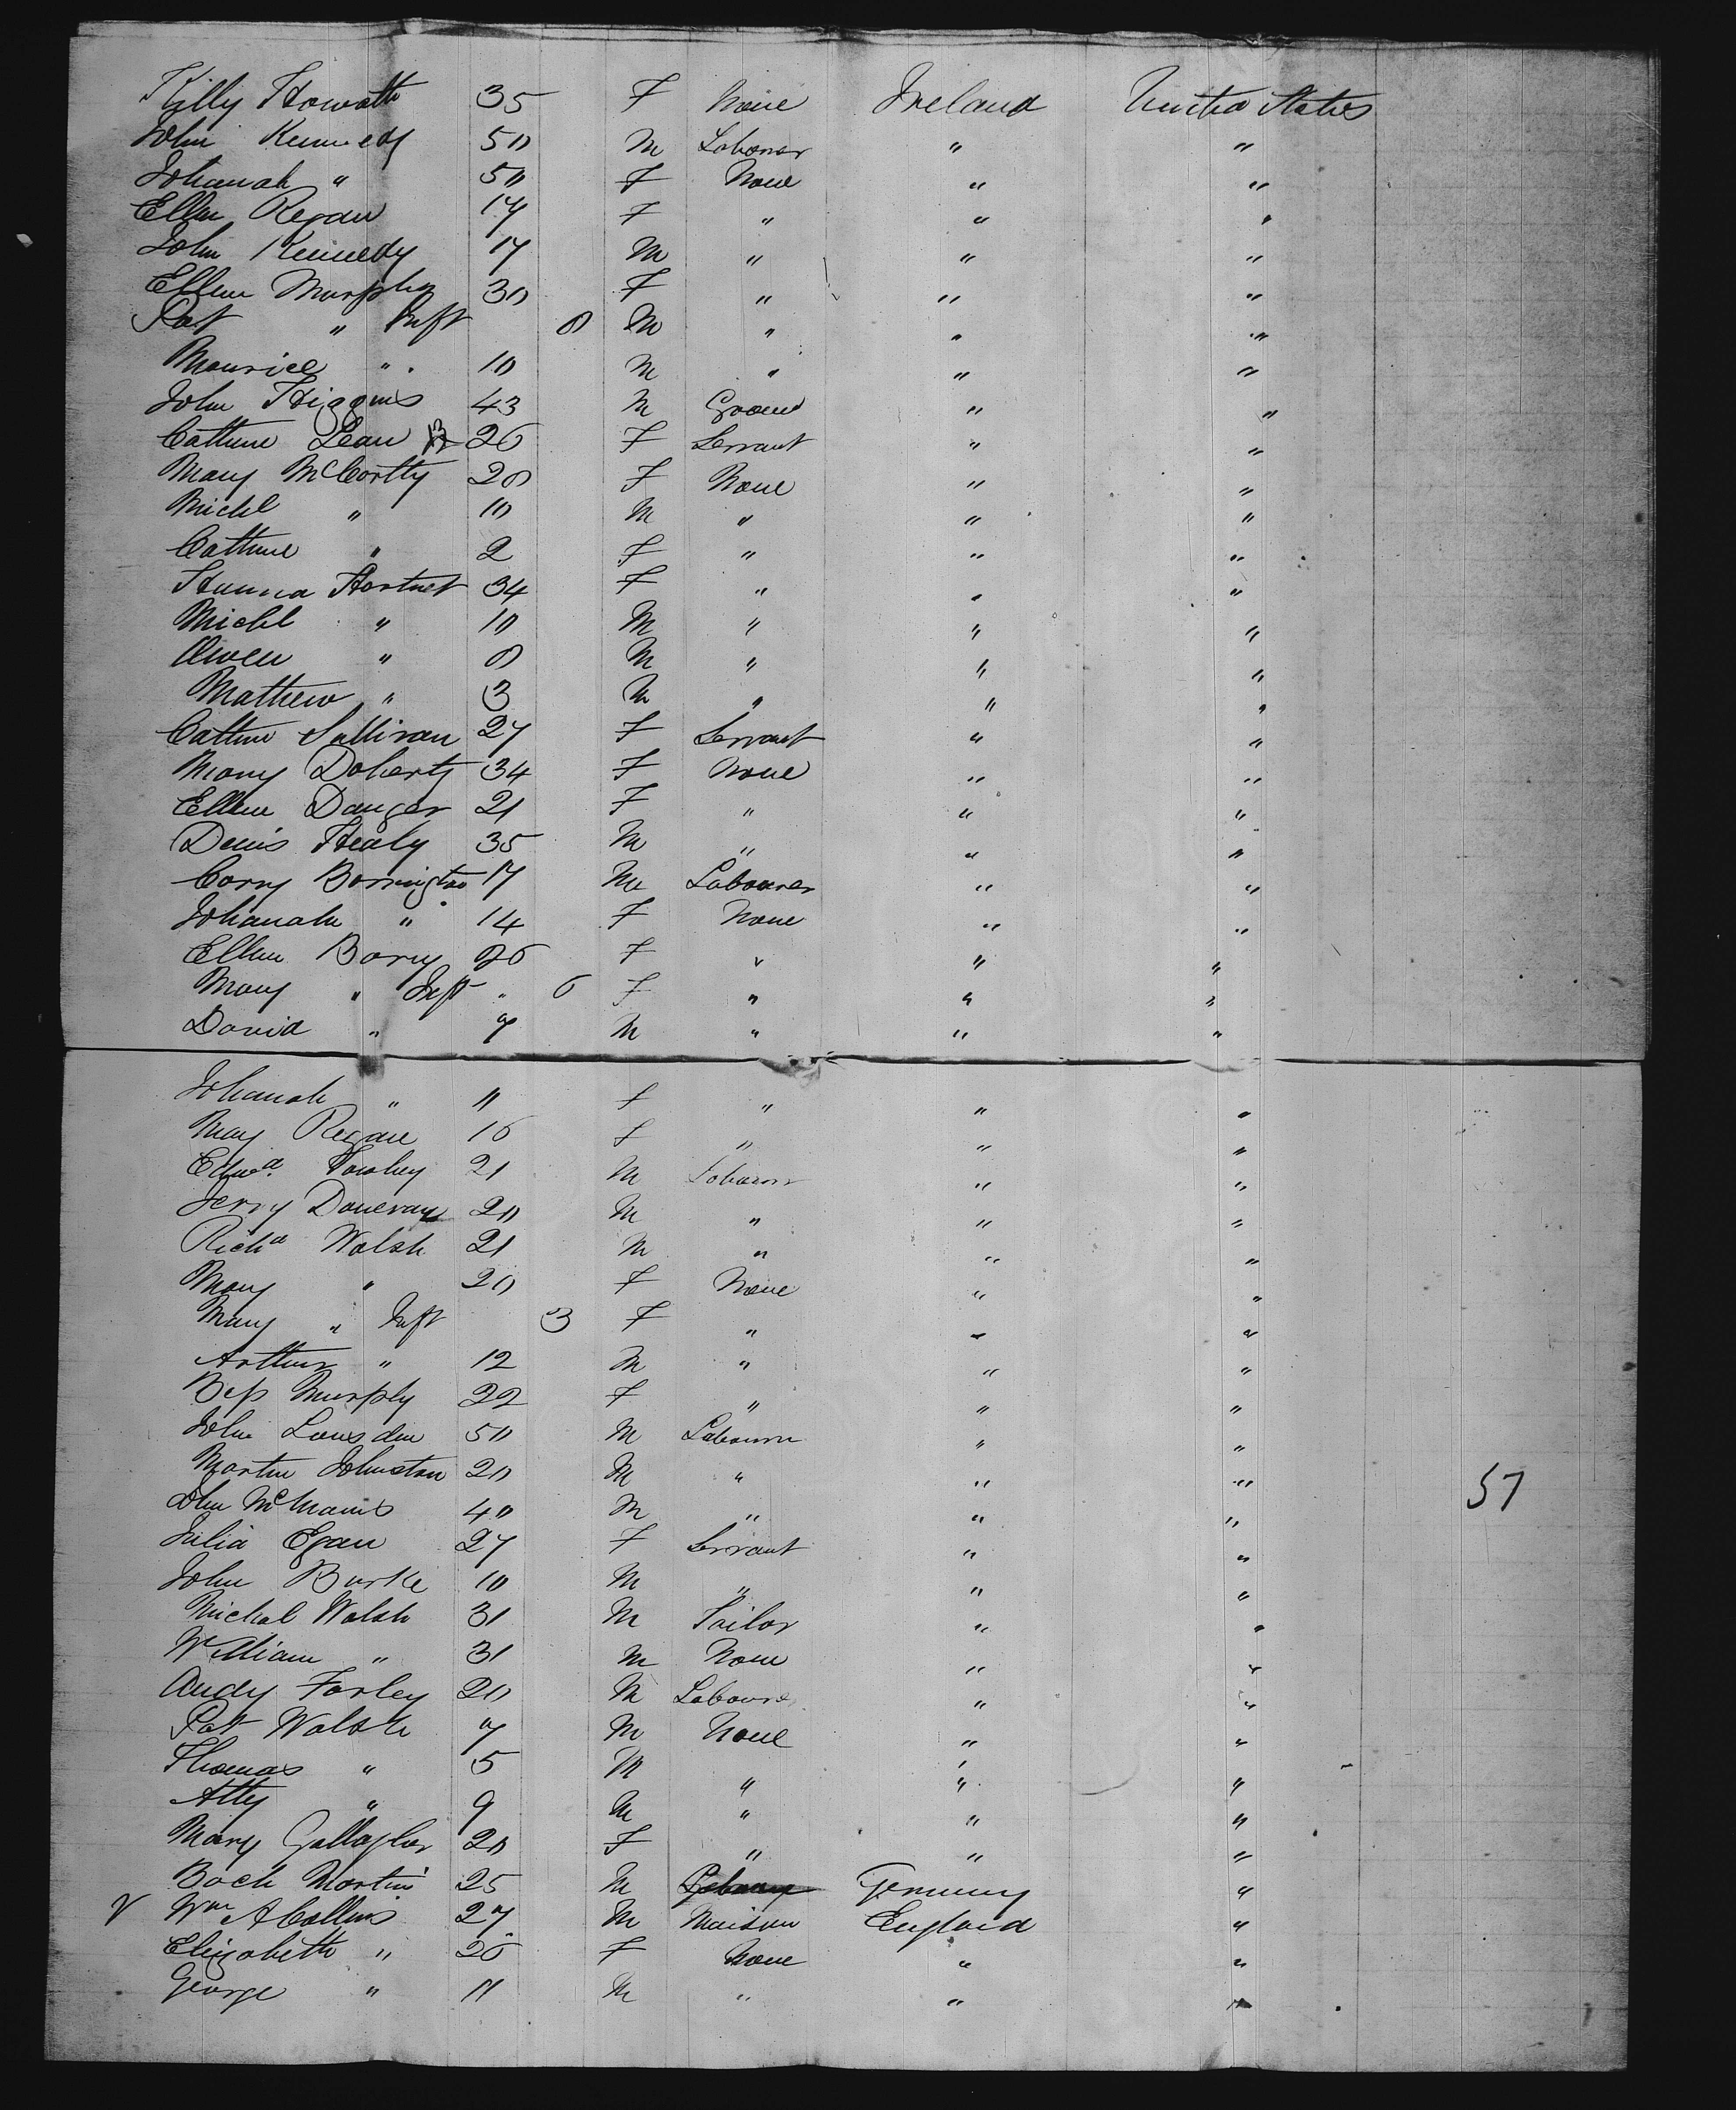 Kitty Howath 35 F None Ireland United States
John Kennedy 50 M Laborer " "
Johanah " 50 F None " "
Ellen Regan 17 F " " "
John Kennedy 17 M " " "
Ellen Murphy 30 F " " "
Pat " Inft 8 M " " "
Maurice " 10 M " " "
John Higgins 43 M Groom " "
Cathne Lean 26 F Servant " "
Mary McCortty 28 F None " "
Michl " 10 M " " "
Cathne " 2 F " " "
Hanna Hartnet 34 F " " "
Michl " 10 M " " "
Owen " 8 M " " "
Mathew " 3 M " " "
Cathne Sullivan 27 F Servant " "
Mary Doherty 34 F None " "
Ellen Danger 21 F " " "
Denis Healy 35 M " " "
Corny Borrington 17 M Labourer " "
Johanah " 14 F None " "
Ellen Barry 26 F " " "
Mary " Inft " 6 F " " "
David " 7 M " " "
Johanah " 11 F " " "
Mary Regan 16 F " " "
Edwd. 21 M Labourer " "
Jerry Donevan 20 M " " "
Richd Walsh 21 M " " "
Mary " 20 F None " "
Mary " Inft 3 F " " "
Arthur " 12 M " " "
Bess Murphy 22 F " " "
John Lonsden 50 M Labourer " "
Martin Johnston 20 M " " " 57
John McManus 40 M " " "
Julia Egan 27 F Servant " "
John Burke 10 M " " "
Michal Walsh 31 M Tailor " "
William " 31 M None " "
Andy Farley 20 M Labourer " "
Pat Walsh 7 M None " "
Thomas " 5 M " " "
Atty " 9 M " " "
Mary Gallagher 20 F " " "
Boch Martin 25 M Germany "
Wm A Collins 27 M Maison England "
Elizabeth " 26 F None " "
George " 11 M " " "